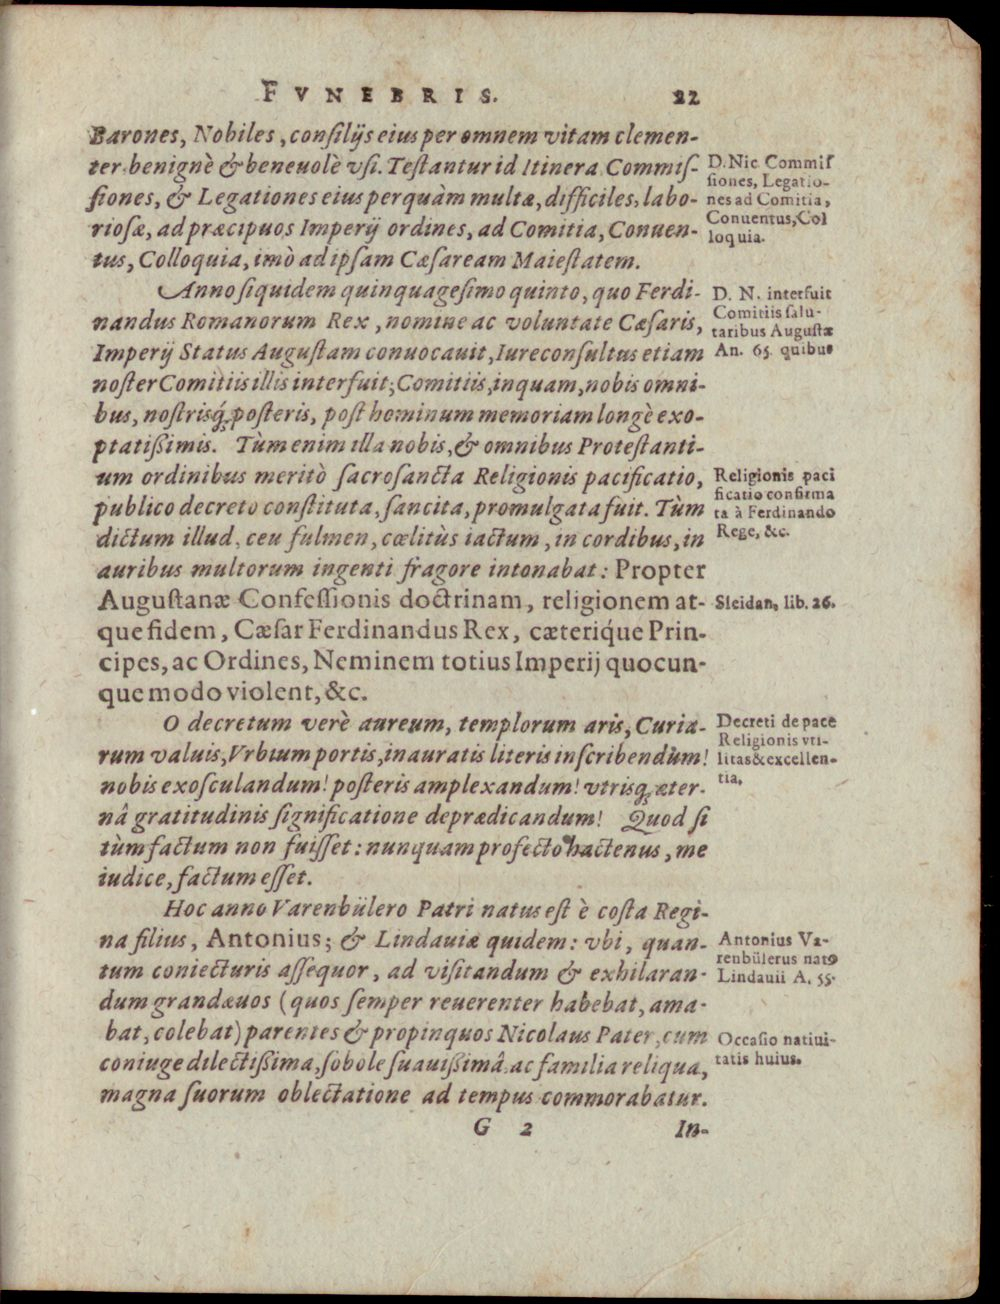 FVNEBRIS. 22
Barones, Nobiles, conſilijs eius per omnem vitam clemen-
ter benignè & beneuolè vſi. Teſtantur id Itinera Commiſ-
ſiones, & Legationes eius perquàm multæ, difficiles, labo-
rioſæ, ad præcipuos Imperij ordines, ad Comitia, Conuen-
tus, Colloquia, imò ad ipſam Cæſaream Maieſtatem.
D. Nic. Commiſ
ſiones, Legatio-
nes ad Comitia,
Conuentus, Col
loquia.
Anno ſiquidem quinquageſimo quinto, quo Ferdi-
nandus Romanorum Rex, nomine ac voluntate Cæſaris,
Imperij Status Auguſtam conuocauit, Iureconſultus etiam
noſter Comitiis illis interfuit; Comitiis, inquam, nobis omni-
bus, noſtrisq́; poſteris, poſt hominum memoriam longè exo-
ptatißimis. Tùm enim illa nobis, & omnibus Proteſtanti-
um ordinibus meritò ſacroſancta Religionis pacificatio,
publico decreto conſtituta, ſancita, promulgata fuit. Tùm
dictum illud, ceu fulmen, cœlitùs iactum, in cordibus, in
auribus multorum ingenti fragore intonabat: Propter
Auguſtanæ Confeſſionis doctrinam, religionem at-
que fidem, Cæſar Ferdinandus Rex, cæteriq́ue Prin-
cipes, ac Ordines, Neminem totius Imperij quocun-
que modo violent, &c.
D. N. interfuit
Comitiis ſalu-
taribus Auguſtæ
An. 65. quibus
Religionis paci
ficatio confirma
ta à Ferdinando
Rege, &c.
Sleidan. lib. 26.
O decretum verè aureum, templorum aris, Curia-
rum valuis, Vrbium portis, inauratis literis inſcribendùm!
nobis exoſculandum! poſteris amplexandum! vtrisq́; æter-
nâ gratitudinis ſignificatione deprædicandum! Quod ſi
tùm factum non fuiſſet: nunquam profecto hactenus, me
iudice, factum eſſet.
Decreti de pace
Religionis vti-
litas & excellen-
tia.
Hoc anno Varenbülero Patri natus eſt è coſta Regi-
na filius, Antonius; & Lindauiæ quidem: vbi, quan-
tum coniecturis aſſequor, ad viſitandum & exhilaran-
dum grandæuos (quos ſemper reuerenter habebat, ama-
bat, colebat) parentes & propinquos Nicolaus Pater, cum
coniuge dilectißima, ſobole ſuauißimâ ac familia reliqua,
magna ſuorum oblectatione ad tempus commorabatur.
Antonius Va-
renbülerus natꝰ
Lindauii A. 55.
Occaſio natiui-
tatis huius.
G 2 In-